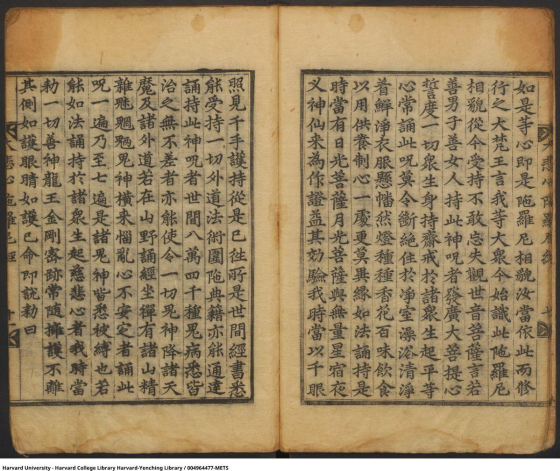 如是等心即是陁羅尼相貌汝當依此而修
行之大梵王言我等大衆今始識此陁羅尼
相貌從今受持不敢忘失觀世音菩薩言若
善男子善女人誦持此神呪者發廣大菩提心
誓度一切衆生身持齋戒於諸衆生起平等
心常誦此呪莫令斷絶住於淨室澡浴清淨
着鮮淨衣服懸幡然燈種種香花百味飲食
以用供養制心一處更莫異緣如法誦持是
時當有日光菩薩月光菩薩與無量星宿夜
叉神仙來為作證益其効驗我時當以千眼
照見千手護持從是已徃所是世間經書悉
能受持一切外道法術圍陁典籍亦能通達
誦持此神呪者世間八萬四千種鬼病悉皆
治之無不差者亦能使令一切鬼神降諸天
魔及諸外道若在山野誦經坐禪有諸山精
雜魅魍魎鬼神橫來惱亂心不安定者誦此
呪一遍乃至七遍是諸鬼神皆悉被縛也若
能如法誦持於諸衆生起慈悲心者我時當
勑一切善神龍王金剛密跡常隨擁護不離
其側如護眼睛如護己命即說勑曰
大悲心陁羅尼經
十一
Harvard University - Harvard College Library Harvard-Yenching Library / 004964477-METS